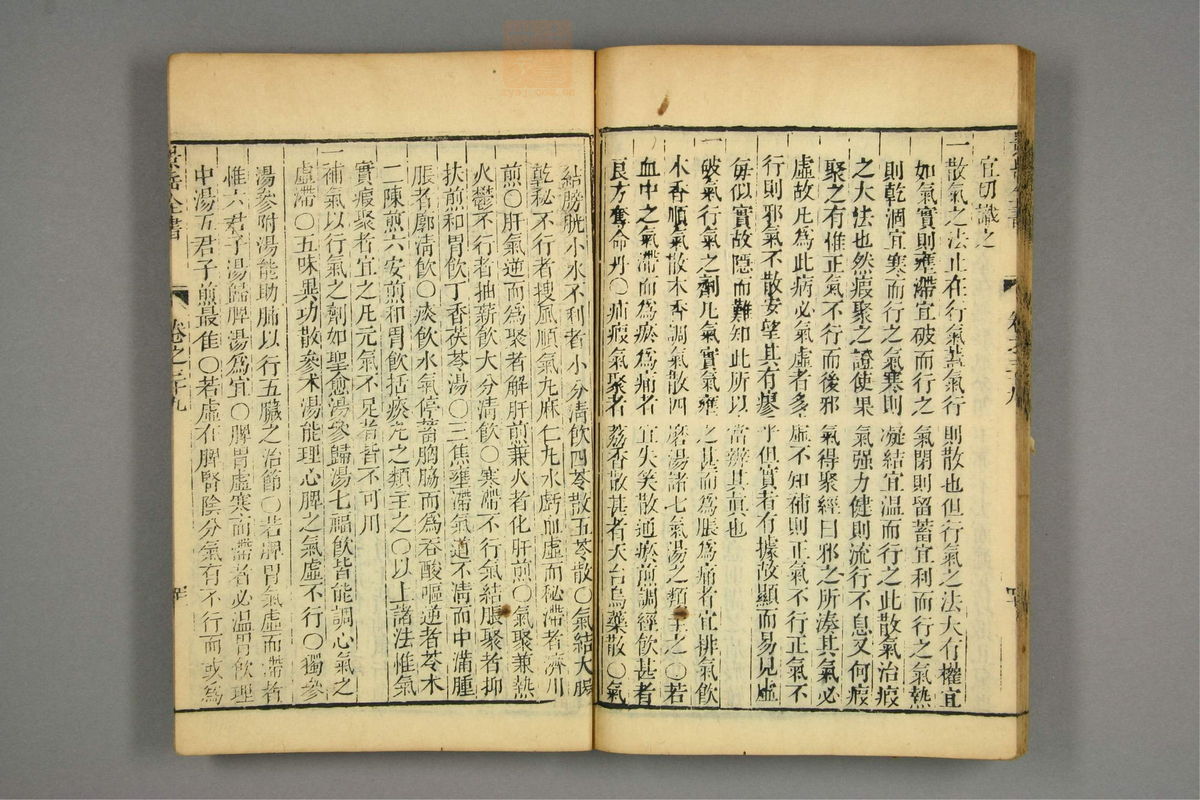 宜切識之
一散氣之法止在行氣蓋氣行則散也但行氣之法大有權宜
如氣實則壅滯宜破而行之氣閉則留蓄宜利而行之氣熱
則乾涸宜寒而行之氣寒則凝結宜溫而行之此散氣治瘕
之大法也然瘕聚之證使果氣强力健則流行不息又何瘕
聚之有惟正氣不行而後邪氣得聚經曰邪之所湊其氣必
虛故凡為此病必氣虛者多虛不知補則正氣不行正氣不
行則邪氣不散安望其有瘳乎但實者有據故顯而易見虛
每似實故隱而難知此所以當辨其真也
一破氣行氣之劑凡氣實氣壅之甚而為脹為痛者宜排氣飲
木香順氣散木香調氣散四磨湯諸七氣湯之類主之〇若
血中之氣滯而為瘀為痛者宜失笑散通瘀煎調經飲甚者
良方奪命丹〇疝瘕氣聚者荔香散甚者天台烏藥散〇氣
結膀胱小水不利者小分清飲四苓散五苓散〇氣結大腸
乾秘不行者搜風順氣丸麻仁丸水虧血虛而秘滯者濟川
煎〇肝氣逆而為聚者解肝煎兼火者化肝煎〇氣聚兼熱
火鬱不行者抽薪飲大分清飲〇寒滯不行氣結脹聚者抑
扶煎和胃飲丁香茯苓湯〇三焦壅滯氣道不清而中滿腫
脹者廓清飲〇痰飲水氣停蓄胸脇而為吞酸嘔逆者苓朮
二陳煎六安煎和胃飲括痰丸之類主之〇以上諸法惟氣
實瘕聚者宜之凡元氣不足者皆不可用
一補氣以行氣之劑如聖愈湯參歸湯七福飲皆能調心氣之
虛滯〇五味異功散參朮湯能理心脾之氣虛不行〇獨參
湯參附湯能助肺以行五臟之治節〇若脾胃氣虛而滯者
惟六君子湯歸脾湯為宜〇脾胃虛寒而滯者必溫胃飲理
中湯五君子煎最佳〇若虛在脾腎陰分氣有不行而或為
景岳全書
卷之二十九